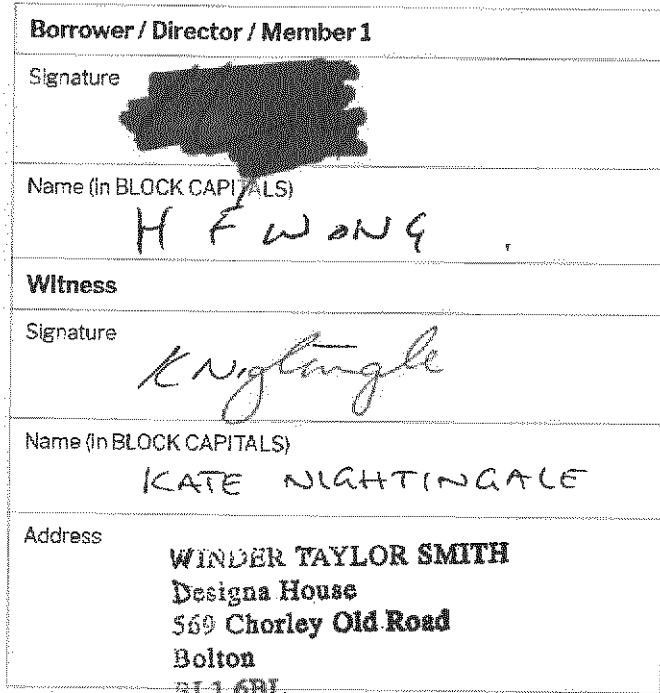 Borrower / Director / Member 1
Signature
Name (in BLOCK CAPITALS)
H F WONG .
Witness
Signature
K Nightingale
Name (in BLOCK CAPITALS)
KATE NIGHTINGALE
Address
WINDER TAYLOR SMITH
Designa House
569 Chorley Old Road
Bolton
BL1 6BL